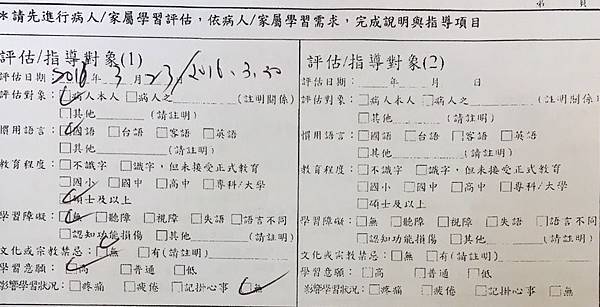 第 頁
*請先進行病人/家屬學習評估,依病人/家屬學習需求,完成說明與指導項目
評估/指導對象(1)
評估日期:2016年3月23/2016.3.30
評估對象:☑病人本人 □病人之 (註明關係)
□其他 (請註明)
慣用語言:☑國語 □台語 □客語 □英語
□其他 (請註明)
教育程度:□不識字 □識字,但未接受正式教育
□國小 □國中 □高中 □專科/大學
☑碩士及以上
學習障礙:☑無 □聽障 □視障 □失語 □語言不同
□認知功能損傷 □其他 (請註明)
文化或宗教禁忌:☑無 □有(請註明)
學習意願:☑高 □普通 □低
影響學習狀況:□疼痛 □疲倦 □記掛心事 ☑無
評估/指導對象(2)
評估日期: 年 月 日
評估對象:□病人本人 □病人之 (註明關係)
□其他 (請註明)
慣用語言:□國語 □台語 □客語 □英語
□其他 (請註明)
教育程度:□不識字 □識字,但未接受正式教育
□國小 □國中 □高中 □專科/大學
□碩士及以上
學習障礙:□無 □聽障 □視障 □失語 □語言不同
□認知功能損傷 □其他 (請註明)
文化或宗教禁忌:□無 □有(請註明)
學習意願:□高 □普通 □低
影響學習狀況:□疼痛 □疲倦 □記掛心事 □無